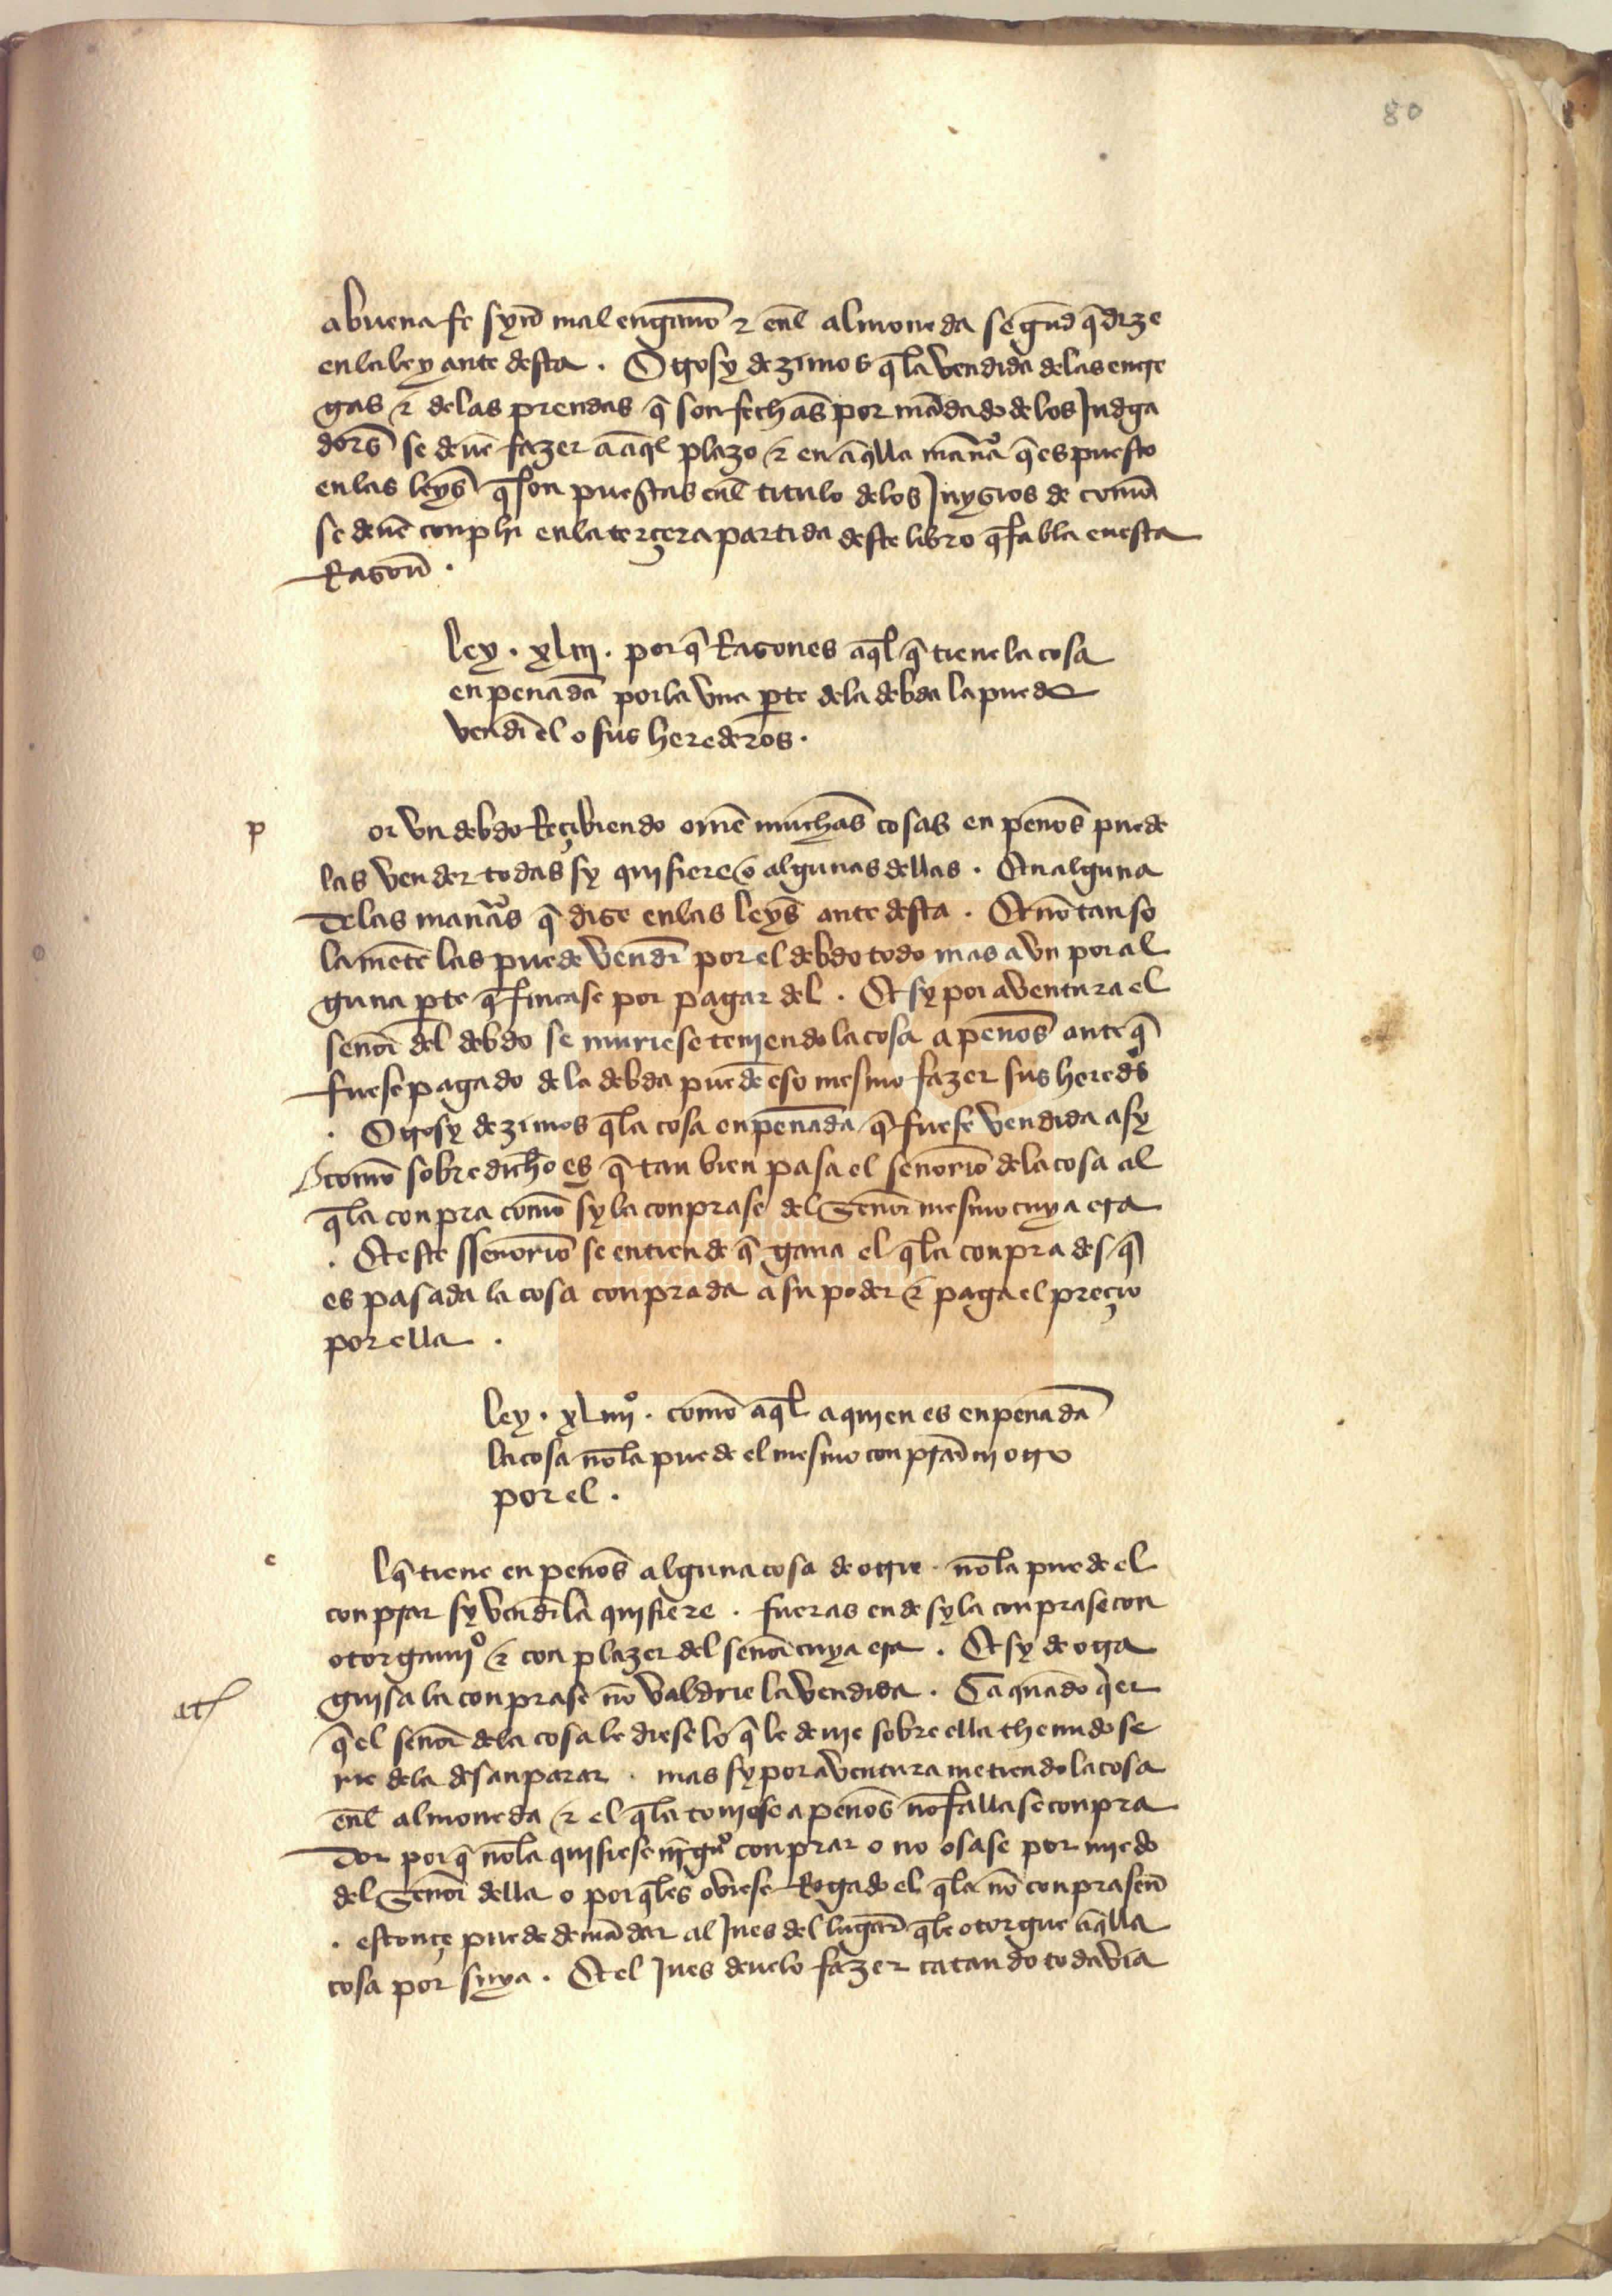 80
abuena fe syn̄ mal enganno ⁊ enl̄ almoneda segund q̄ dize
enla ley ante desta . Otrosy dezimos q̄ la vendida delas entre
gas ⁊ delas prendas q̄ son fechas por mādado de los Judga
dors̄ se deue fazer a aq̄l plazo ⁊ en aq̄lla man̄a q̄ es puesto
enlas leys̄ q̄ son puestas enl̄ titulo delos Juyzios de comō
se deuē conplir enla terçera partida deste libro q̄ fabla enesta
Razon̄ .
ley . xliij . por q̄ Razones aq̄l q̄ tiene la cosa
enpenada por la vna pte dela debda la puede
vendr̄ el o sus herederos .
p or vn debdo Reçibiendo omē muchas cosas en penos̄ puede
las vender todas sy quisiere o algunas dellas . En alguna
delas man̄as q̄ dize enlas leys̄ ante desta . Et nō tan so
lamēte las puede vendr̄ por el debdo todo mas avn por al
guna pte q̄ fincase por pagar del . Et sy por aventura el
señor̄ del debdo se muriese teniendo la cosa a penos̄ ante q̄
fuese pagado de la debda puedē eso mesmo fazer sus hereds̄
. Otrosy dezimos q̄ la cosa enpenada q̄ fuese vendida asy
comō sobredicho es q̄ tan bien pasa el señorio dela cosa al
q̄ la conpra comō sy la conprase del Señor mesmo cuya era
. Et este sseñorio se entiende q̄ gana el q̄ la conpra des q̄
es pasada la cosa conprada a su poder ⁊ paga el preçio
por ella .
ley . xliiijº . comō aq̄l a quien es enpenada
la cosa nō la puede el mesmo conprar nj otro
por el .
e l q̄ tiene en penos̄ alguna cosa de otrie . nō la puede el
conprar sy vendr̄la quisiere . fueras ende sy la conprase con
otorgamjº ⁊ con plazer del señor̄ cuya era . Et sy de otra
guisa la conprase nō valdrie la vendida . Ca quādo q̄er
q̄ el señor̄ dela cosa le diese lo q̄ le deuie sobre ella thenudo se
rie dela desanparar . mas sy por aventura metiendo la cosa
enl̄ almoneda ⁊ el q̄ la touiese a penos̄ nō fallase conpra
dor por q̄ nō la quisiese njgº conprar o no osase por miedo
del Señor della o por q̄ les oviese Rogado el q̄ la nō conprasen̄
. estonçe puede demādar al Jues del lugar̄ q̄ le otorgue aq̄lla
cosa por suya . Et el Jues deuelo fazer catando todavia